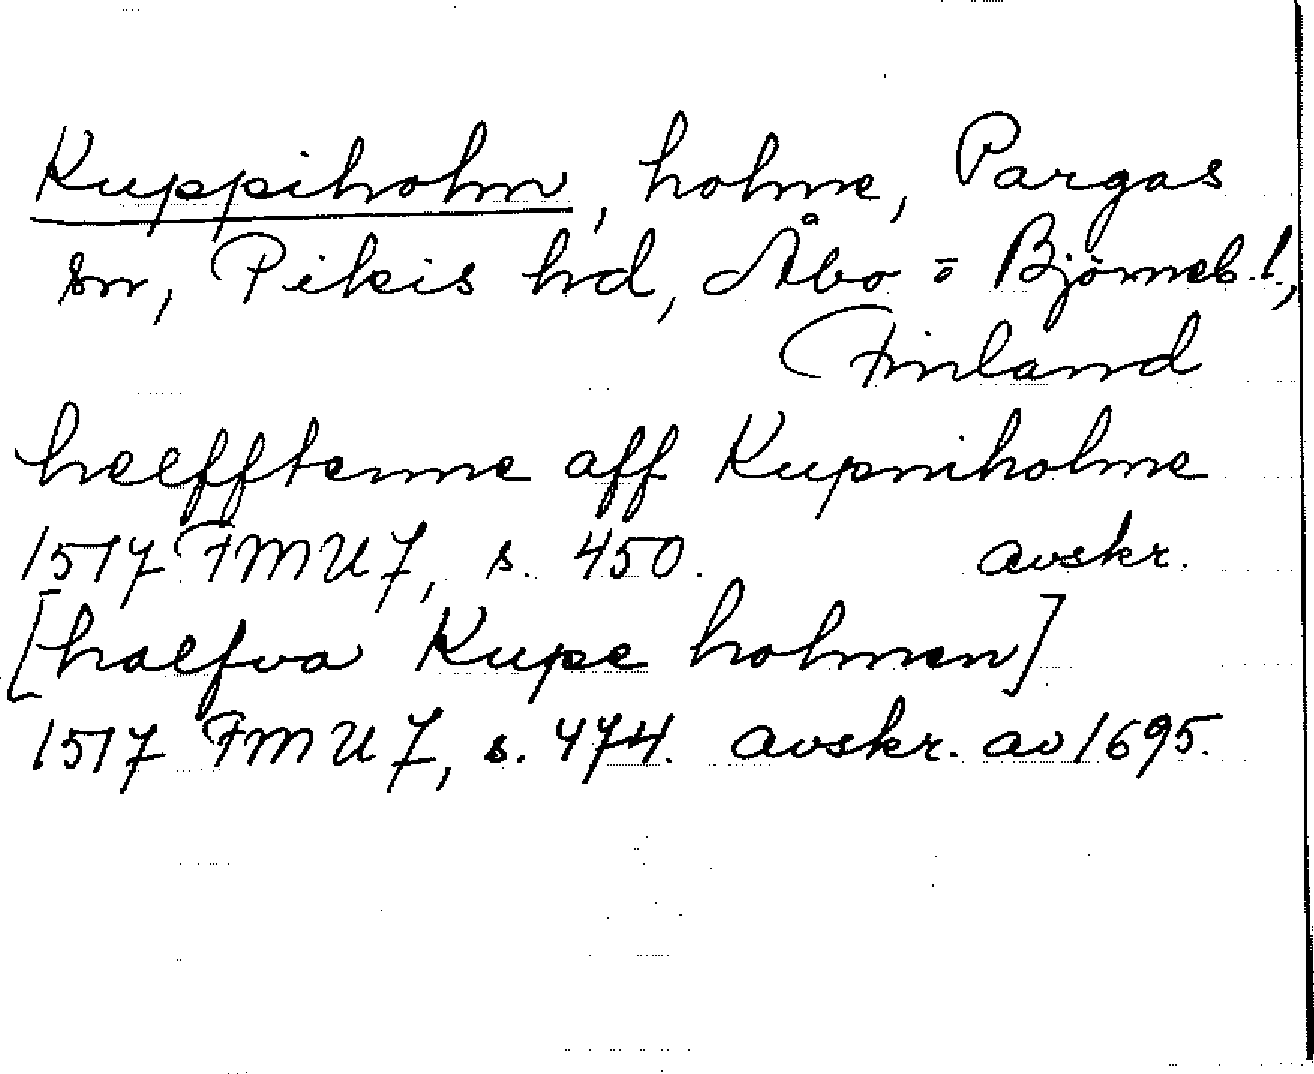 Kuppiholm, holme, Pargas
sn, Pikis hd, Åbo o Björneb. l.,
Finland
helfftenne aff Kupmiholme
1517 FMU 7, s. 450. avskr.
[haelfva Kupe holmen]
1517 FMU 7, s. 474. avskr. av 1695.